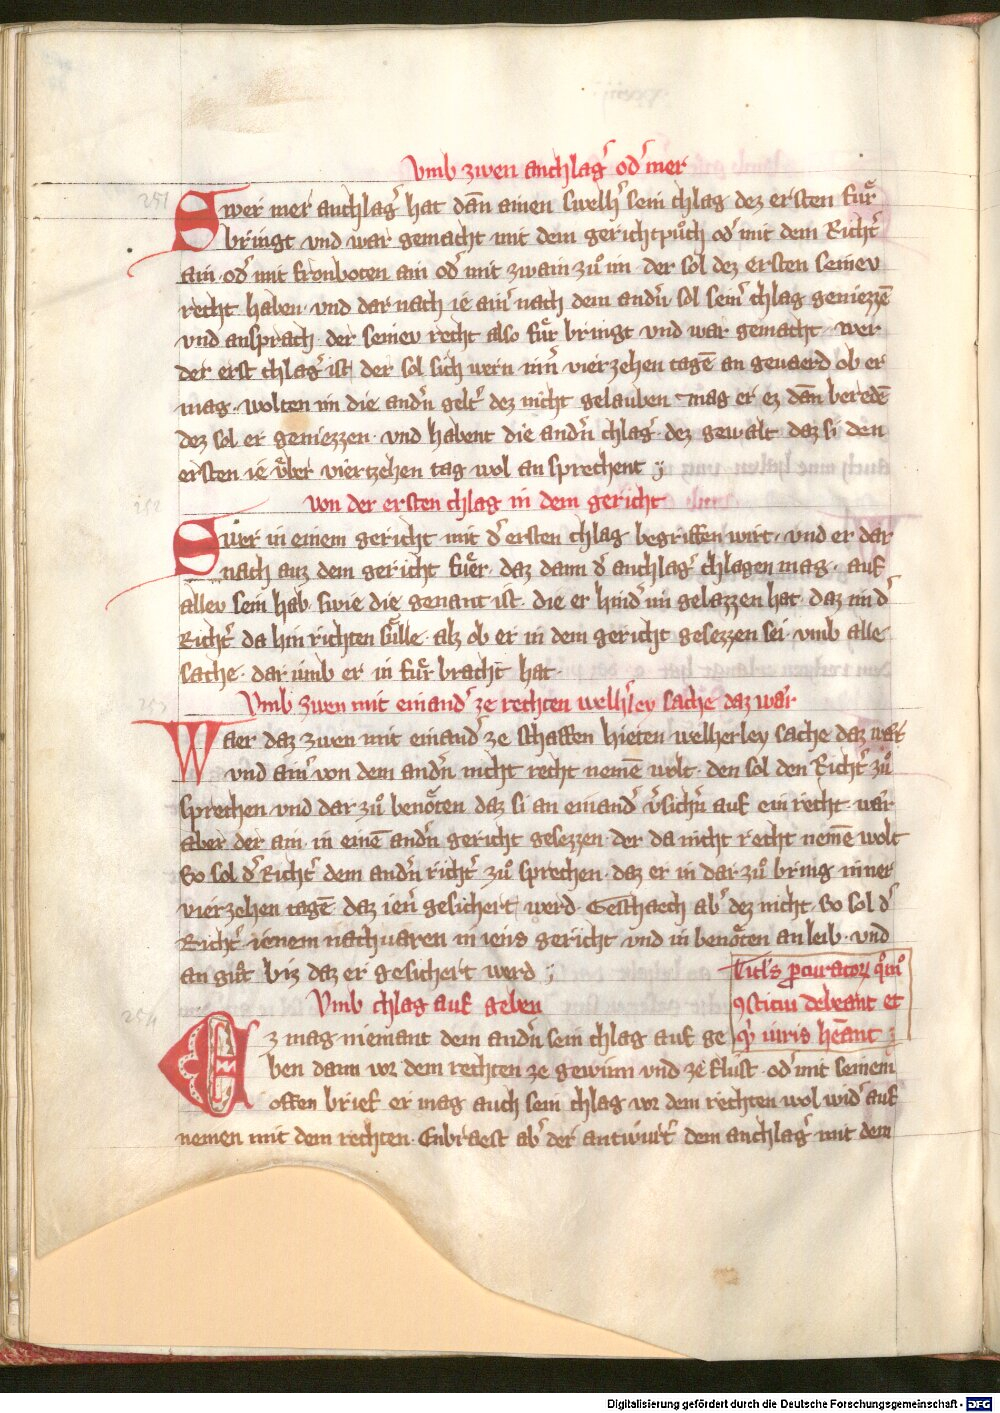 Vmb zwen anchlag̕ od̕ mer
251
Swer mer anchlag̕ hat dañ ainen swelh̕ sein chlag dez ersten fuͤr
bringt vnd war gemacht mit dem gerichtpuͦch od̕ mit dem Richt̕
ain · od̕ mit fronboten ain od̕ mit zwain zuͦ im · der sol dez ersten seinev
recht haben · vnd dar nach ie ain̕ nach dem and̕n sol sein̕ chlag geniezzē
vnd ansprach · der seinev recht also fuͤr bringt vnd war gemacht · wer
der erst chlag̕ ist der sol sich wern inn̕ vierzehen tagē an gevaerd ob er
mag · wolten im die and̕n gelt̕ dez nicht gelauben mag er ez dañ beredē
dez sol er geniezzen · vnd habent die and̕n chlag̕ dez gewalt daz si den
ersten ie vͤber viertzehen tag wol an sprechent ;
252
von der ersten chlag in dem gericht
Swer in einem gericht mit d̕ ersten chlag begriffen wirt · vnd er dar
nach auz dem gericht fuͤer · daz dann d̕ anchlag̕ chlagen mag · auf
allev sein hab · swie die genant ist · die er hind̕ im gelazzen hat · daz im d̕
Richt̕ da hin richten suͤlle · alz ob er in dem gericht gesezzen sei · vmb alle
sache · dar umb er in fuͤr bracht hat ·
253
Vmb zwen mit einand̕ ze rechten welh̕ley sache daz waͤr
Waer daz zwen mit einand̕ ze schaffen hieten welherley sache daz waͤr
vnd ain̕ von dem and̕n nicht recht nemē wolt · den sol den Richt̕ zuͦ
sprechen · vnd dar zuͦ benoͤten daz si an einand̕ v̕sich̕n auf ein recht · waͤr
aber der ain · in einē and̕n gericht gesezzen · der da nicht recht nemē wolt
So sol d̕ Richt̕ dem and̕n richt̕ zuͦ sprechen · daz er in dar zuͦ bring inner
vierzehen tagē daz ien̕ gesichert werd · Geschaech ab̕ dez nicht · So sol d̕
Richt̕ ienem nachvaren in iens gericht vnd in benoͤten an leib · vnd
an guͦt biz daz er gesichert werd ;
Titl's p̱curatoꝝ q̊m̊
ꝯstitui debeant et
q̄ iuris hēant ;
254
Vmb chlag auf geben
Ez mag niemant dem and̕n sein chlag auf ge
ben dann vor dem rechten ze gewinn vnd ze flust · od̕ mit seinem
offen brief er mag auch sein chlag vor dem rechten wol wid̕ auf
nemen mit dem rechten · Enbraest ab̕ der antwurt̕ dem anchlag̕ mit dem
Digitalisierung gefördert durch die Deutsche Forschungsgemeinschaft - DFG